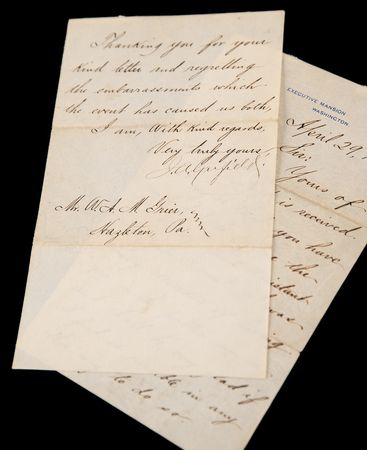 Thanking you for your
kind letter and regretting
the embarrassments which
the event has caused us both,
I am, With kind regards,
Very truly yours,
J A Garfield
Mr. W. A. M Grier,
Hazleton, Pa.
EXECUTIVE MANSION
WASHINGTON
April 29,
Sir:
Yours of
is received
you have
the
was
if
in any
to do so.